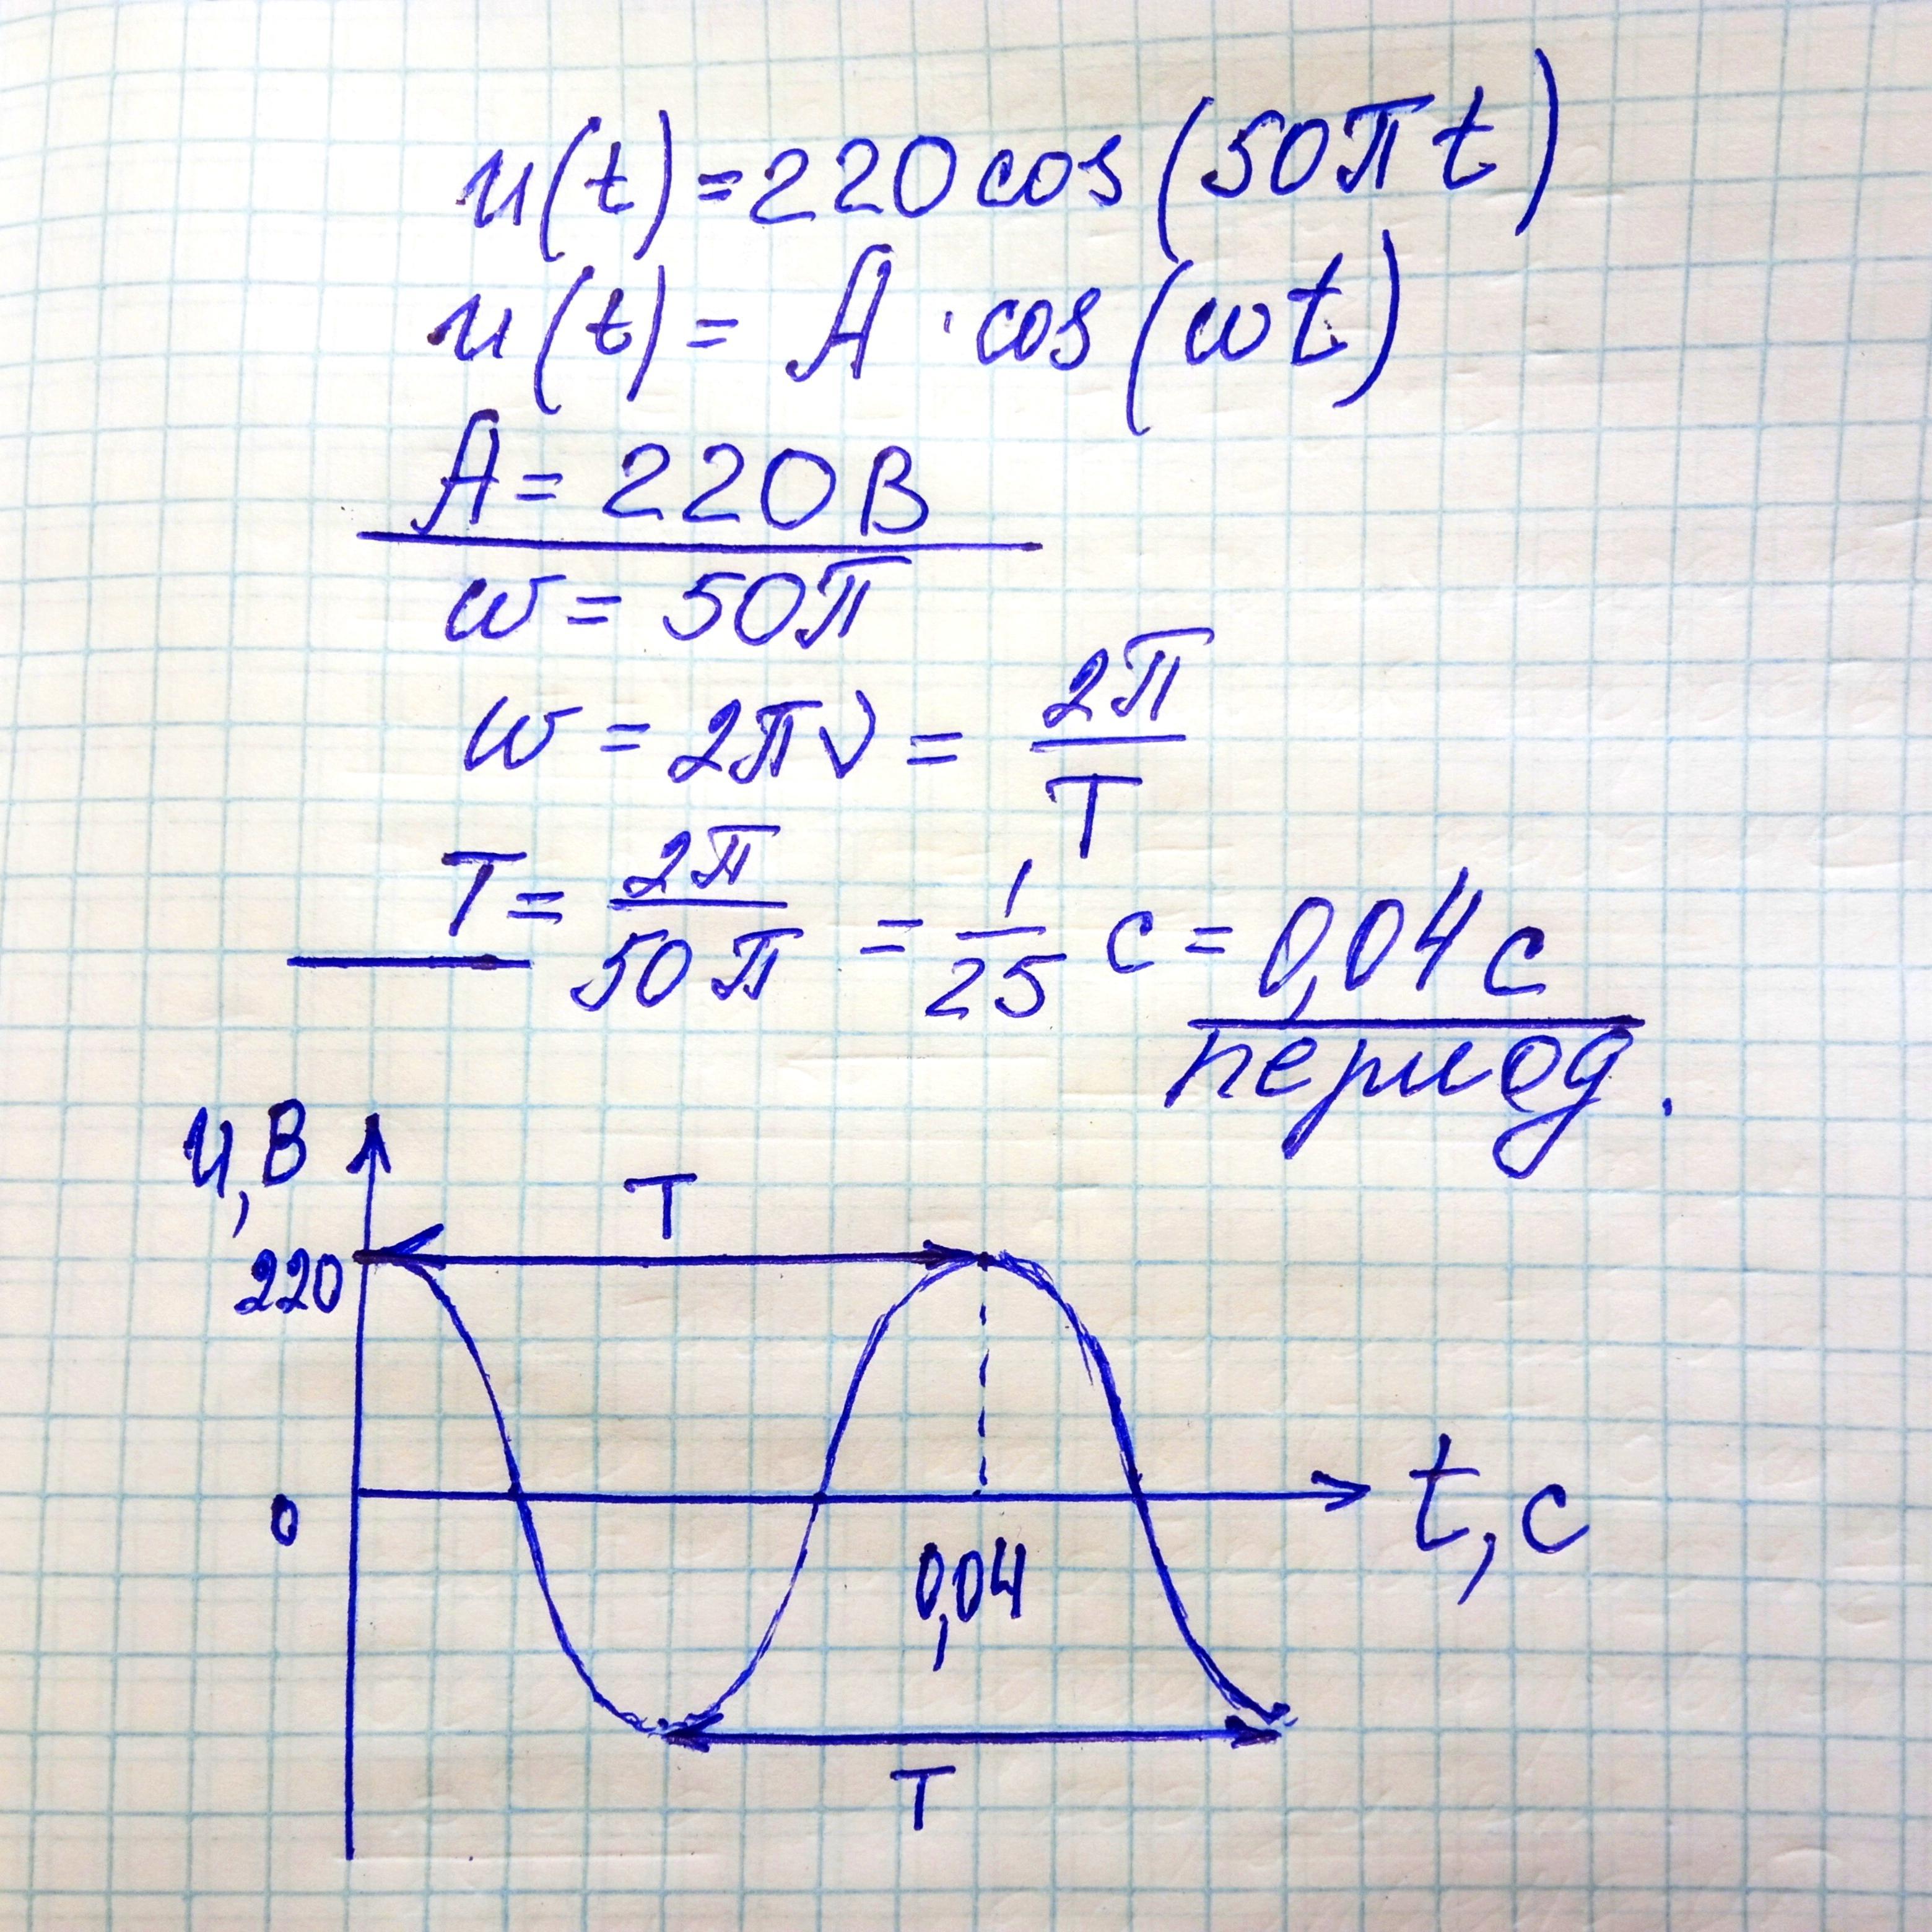 u(t) = 220 cos(50πt)
u(t) = A · cos(ωt)
A = 220 В
ω = 50π
ω = 2πν = 2π/T
T = 2π/50π = 1/25 с = 0,04 с
период.
u, В
T
220
0
t, с
0,04
T